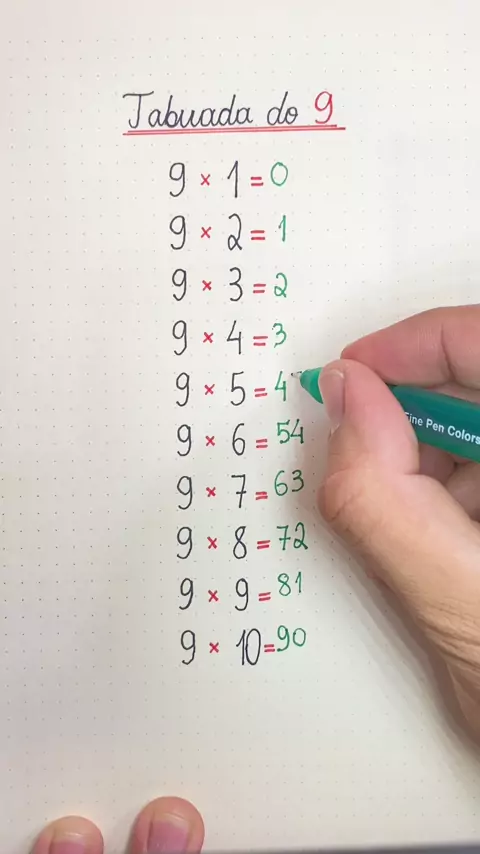 Tabuada do 9
9 × 1 = 0
9 × 2 = 1
9 × 3 = 2
9 × 4 = 3
9 × 5 = 4
9 × 6 = 54
9 × 7 = 63
9 × 8 = 72
9 × 9 = 81
9 × 10 = 90
Fine Pen Colors